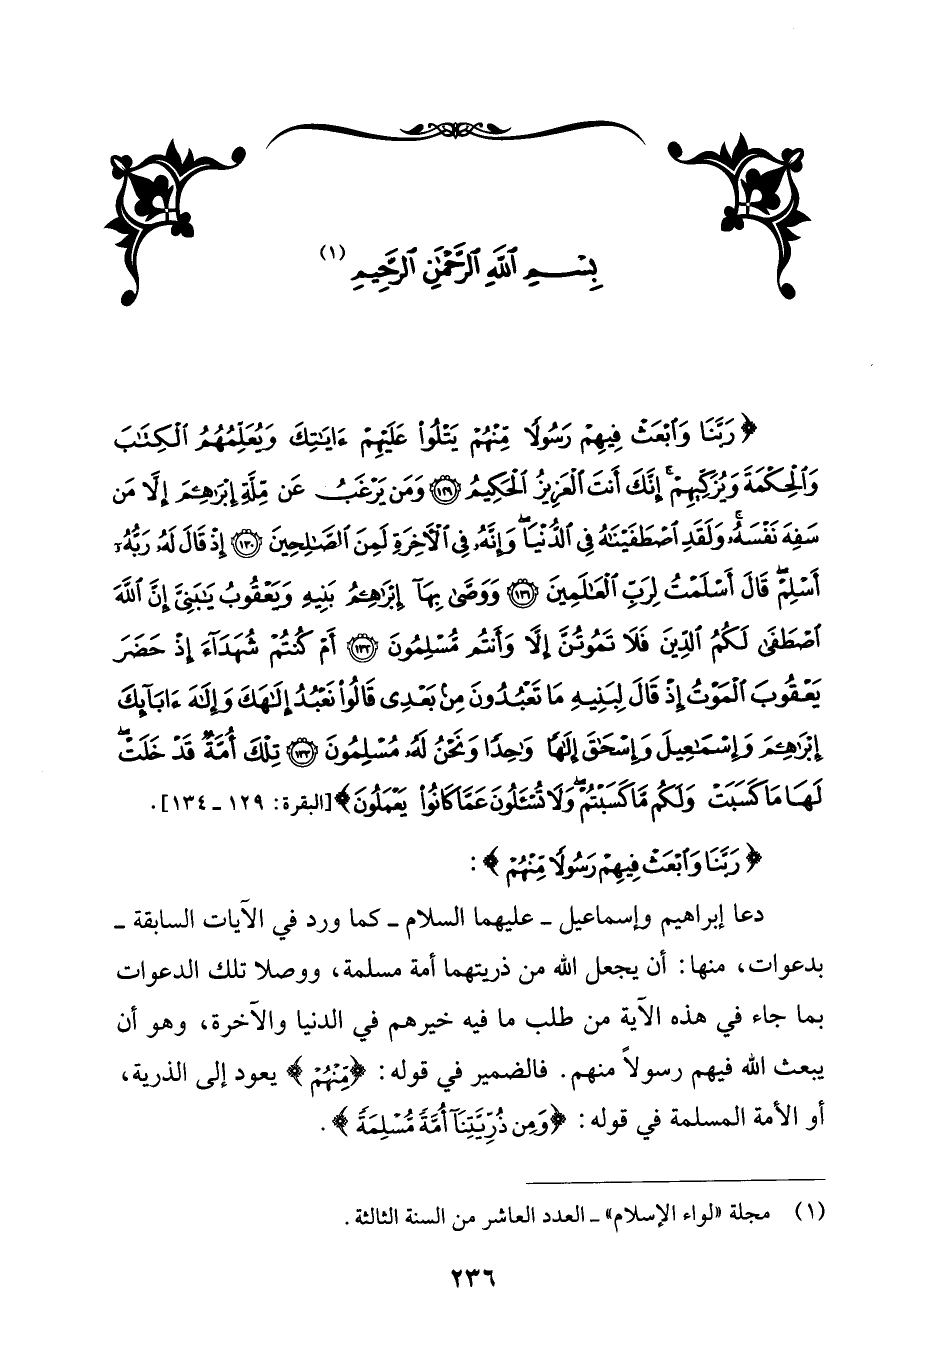 بِسْمِ ٱللَّهِ ٱلرَّحْمَٰنِ ٱلرَّحِيمِ (١)
﴿ رَبَّنَا وَٱبْعَثْ فِيهِمْ رَسُولًا مِّنْهُمْ يَتْلُوا۟ عَلَيْهِمْ ءَايَٰتِكَ وَيُعَلِّمُهُمُ ٱلْكِتَٰبَ
وَٱلْحِكْمَةَ وَيُزَكِّيهِمْ ۚ إِنَّكَ أَنتَ ٱلْعَزِيزُ ٱلْحَكِيمُ ١٢٩ وَمَن يَرْغَبُ عَن مِّلَّةِ إِبْرَٰهِـۧمَ إِلَّا مَن
سَفِهَ نَفْسَهُۥ ۚ وَلَقَدِ ٱصْطَفَيْنَٰهُ فِى ٱلدُّنْيَا ۖ وَإِنَّهُۥ فِى ٱلْءَاخِرَةِ لَمِنَ ٱلصَّٰلِحِينَ ١٣٠ إِذْ قَالَ لَهُۥ رَبُّهُۥٓ
أَسْلِمْ ۖ قَالَ أَسْلَمْتُ لِرَبِّ ٱلْعَٰلَمِينَ ١٣١ وَوَصَّىٰ بِهَآ إِبْرَٰهِـۧمُ بَنِيهِ وَيَعْقُوبُ يَٰبَنِىَّ إِنَّ ٱللَّهَ
ٱصْطَفَىٰ لَكُمُ ٱلدِّينَ فَلَا تَمُوتُنَّ إِلَّا وَأَنتُم مُّسْلِمُونَ ١٣٢ أَمْ كُنتُمْ شُهَدَآءَ إِذْ حَضَرَ
يَعْقُوبَ ٱلْمَوْتُ إِذْ قَالَ لِبَنِيهِ مَا تَعْبُدُونَ مِنۢ بَعْدِى قَالُوا۟ نَعْبُدُ إِلَٰهَكَ وَإِلَٰهَ ءَابَآئِكَ
إِبْرَٰهِـۧمَ وَإِسْمَٰعِيلَ وَإِسْحَٰقَ إِلَٰهًا وَٰحِدًا وَنَحْنُ لَهُۥ مُسْلِمُونَ ١٣٣ تِلْكَ أُمَّةٌ قَدْ خَلَتْ ۖ
لَهَا مَا كَسَبَتْ وَلَكُم مَّا كَسَبْتُمْ ۖ وَلَا تُسْـَٔلُونَ عَمَّا كَانُوا۟ يَعْمَلُونَ ﴾ [البقرة: ١٢٩ ـ ١٣٤].
﴿ رَبَّنَا وَٱبْعَثْ فِيهِمْ رَسُولًا مِّنْهُمْ ﴾:
دعا إبراهيم وإسماعيل ـ عليهما السلام ـ كما ورد في الآيات السابقة ـ
بدعوات، منها: أن يجعل الله من ذريتهما أمة مسلمة، ووصلا تلك الدعوات
بما جاء في هذه الآية من طلب ما فيه خيرهم في الدنيا والآخرة، وهو أن
يبعث الله فيهم رسولاً منهم. فالضمير في قوله: ﴿مِّنْهُمْ ﴾ يعود إلى الذرية،
أو الأمة المسلمة في قوله: ﴿وَمِن ذُرِّيَّتِنَآ أُمَّةً مُّسْلِمَةً ﴾.
(١) مجلة «لواء الإسلام» ـ العدد العاشر من السنة الثالثة.
٢٣٦